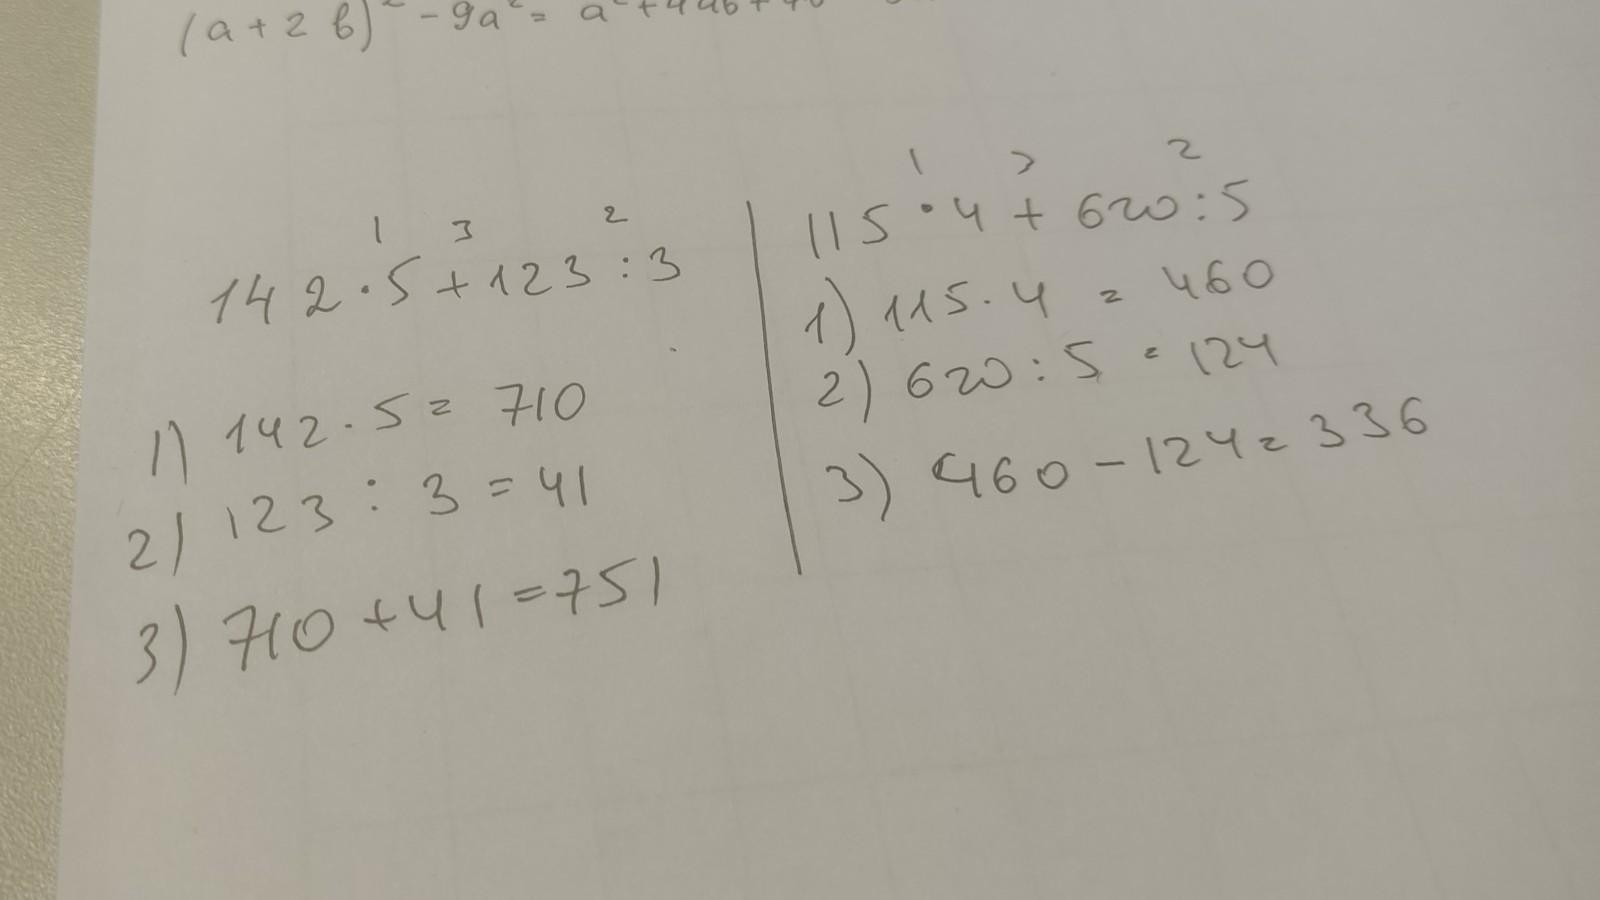 (a + 2b)² - 9a² = a² + 4ab +
1 3 2
142 · 5 + 123 : 3
1) 142 · 5 = 710
2) 123 : 3 = 41
3) 710 + 41 = 751
1 3 2
115 · 4 + 620 : 5
1) 115 · 4 = 460
2) 620 : 5 = 124
3) 460 - 124 = 336